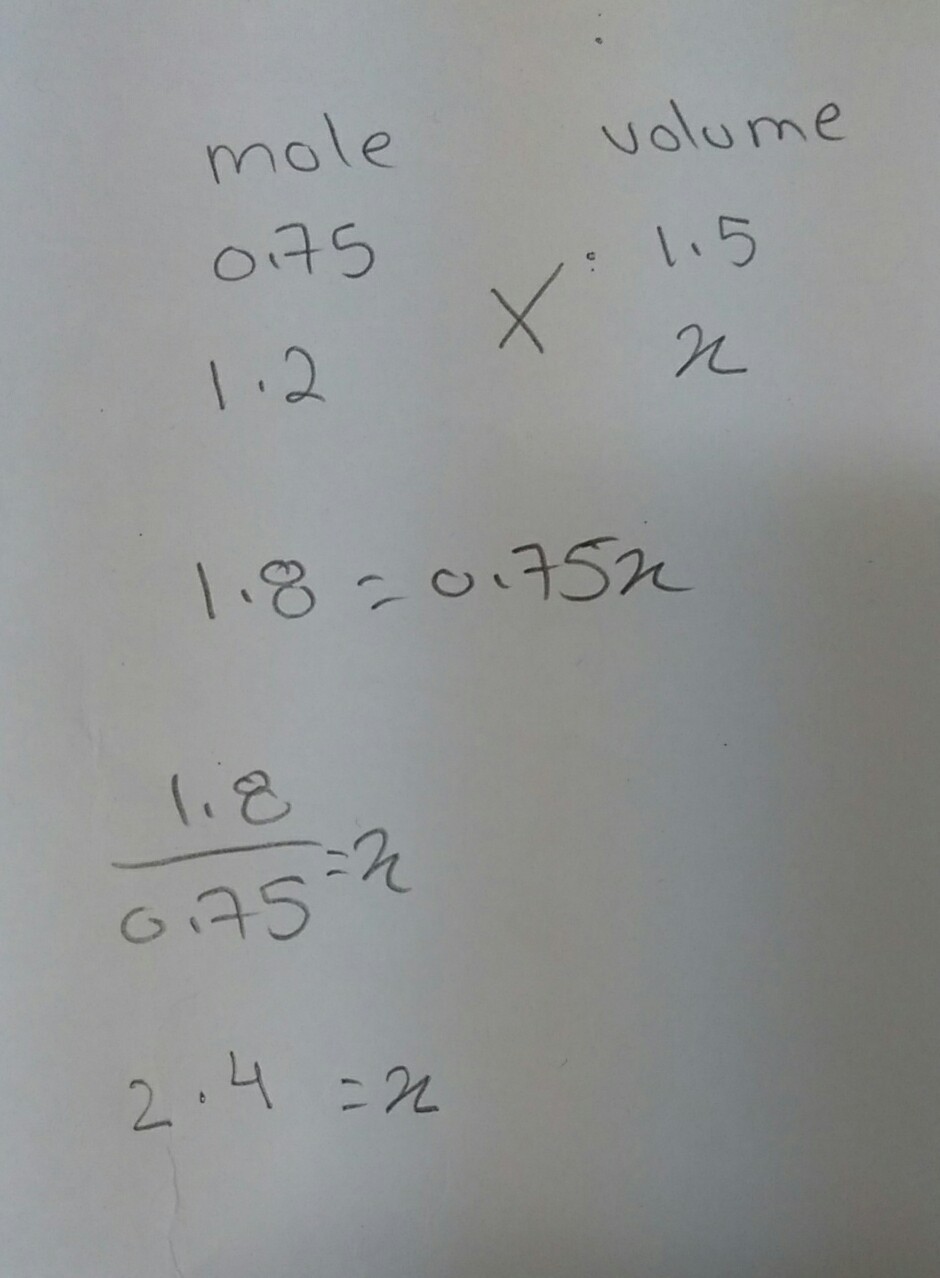 mole : volume
0.75 : 1.5
1.2 x
1.8 = 0.75x
1.8
0.75 = x
2.4 = x